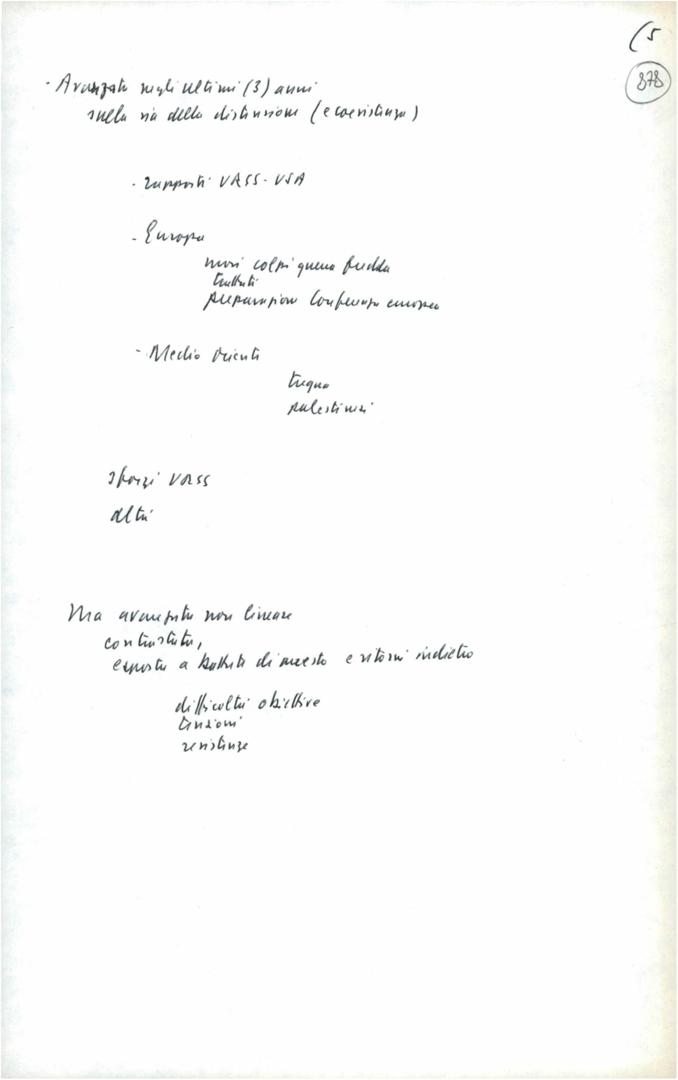 (5
878
- Avanzata negli ultimi (3) anni
sulla via della distensione (e coesistenza)
- rapporti URSS-USA
- Europa
nuovi colpi guerra fredda
trattati
preparazione Conferenza europea
- Medio Oriente
tregua
palestinesi
sforzi URSS
altri
Ma avanzata non lineare
contrastata,
esposta a battute di arresto e ritorni indietro
difficoltà obiettive
tensioni
resistenze